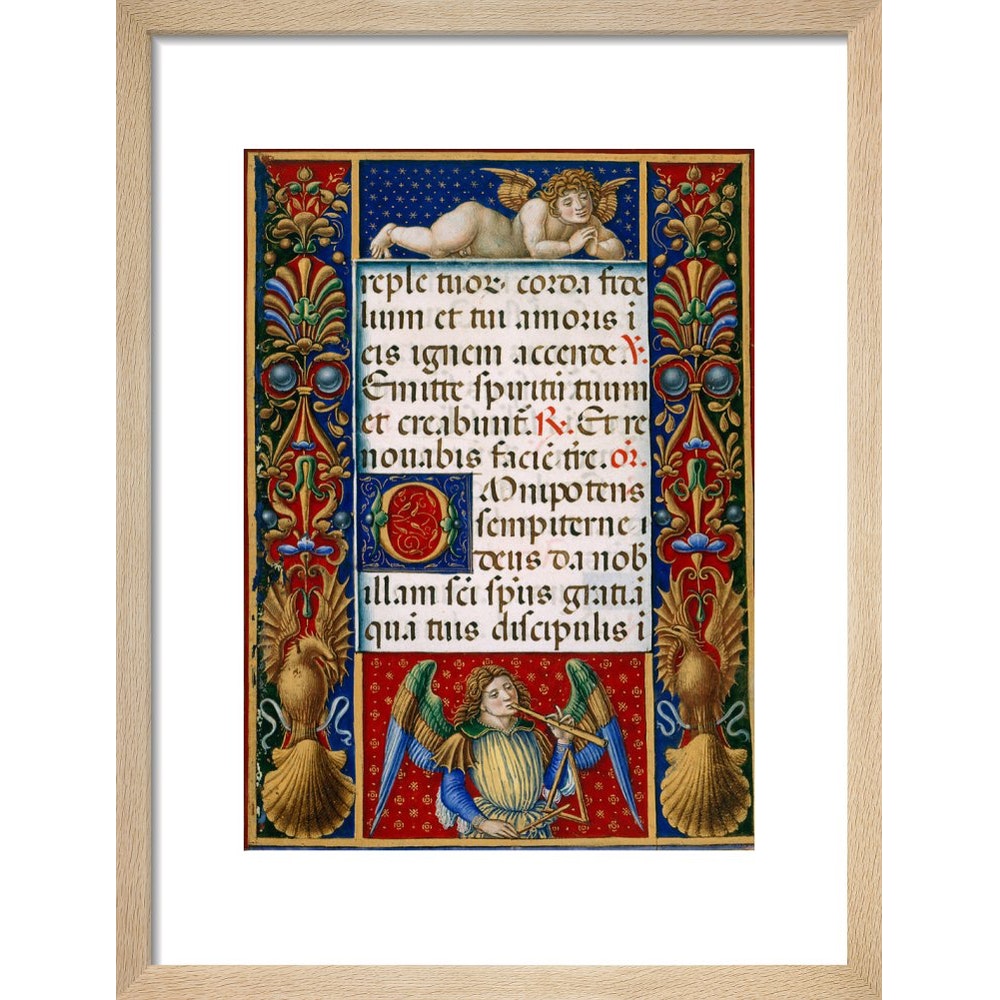 reple tuor corda fide
lium et tui amoris i
eis ignem accende. V.
Emitte spiritū tuum
et creabunt̄. R. Et re
novabis faciē trē. or.
OMnipotens
sempiterne
deus da nob
illam sc̄i sp̄us gratiā
quā tuis discipulis i